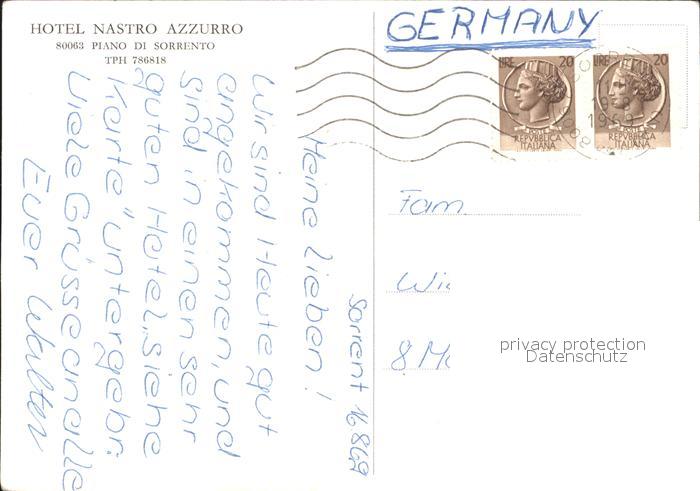 HOTEL NASTRO AZZURRO
80063 PIANO DI SORRENTO
TPH 786818
GERMANY
LIRE 20
REPVBBLICA
ITALIANA
LIRE 20
REPVBBLICA
ITALIANA
1969
Sorrent 16.8.69
Meine Lieben!
Wir sind Heute gut
angekommen, und
sind in einen sehr
guten Hotel, siehe
Karte" untergebr.
Viele Grüsse an alle
Euer Walter
Fam.
Wi
8 M
privacy protection
Datenschutz